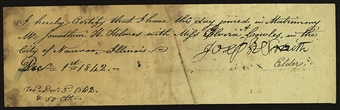 I hereby Certify that I have this day joined in Matrimony
Mr Jonathan H. Holmes with Miss Elvira A Cowles, in the
City of Nauvoo, Illinois.
Joseph Smith
Dec. 1st 1842. Elder,
Dec. 3d 1842.